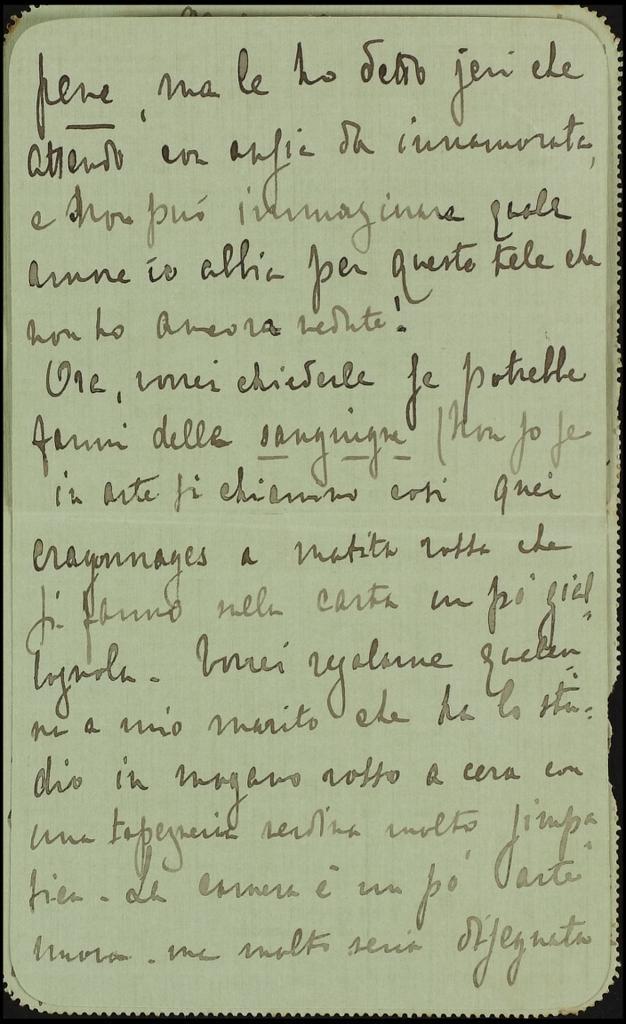 pene, ma le ho detto jeri che
attendo con ansia da innamorata,
e non può immaginare quale
amore io abbia per queste tele che
non ho ancora vedute!
Ora, vorrei chiederle se potrebbe
farmi delle sanguigne (non so se
in arte si chiamino così quei
crayonnages a matita rossa che
si fanno nella carta un pò gial=
lognola. Vorrei regalarne qualcu=
na a mio marito che ha lo stu=
dio in mogano rosso a cera con
una tapezzeria verdina molto simpa=
tica. La camera è un pò arte
nuova. ma molto seria disegnata